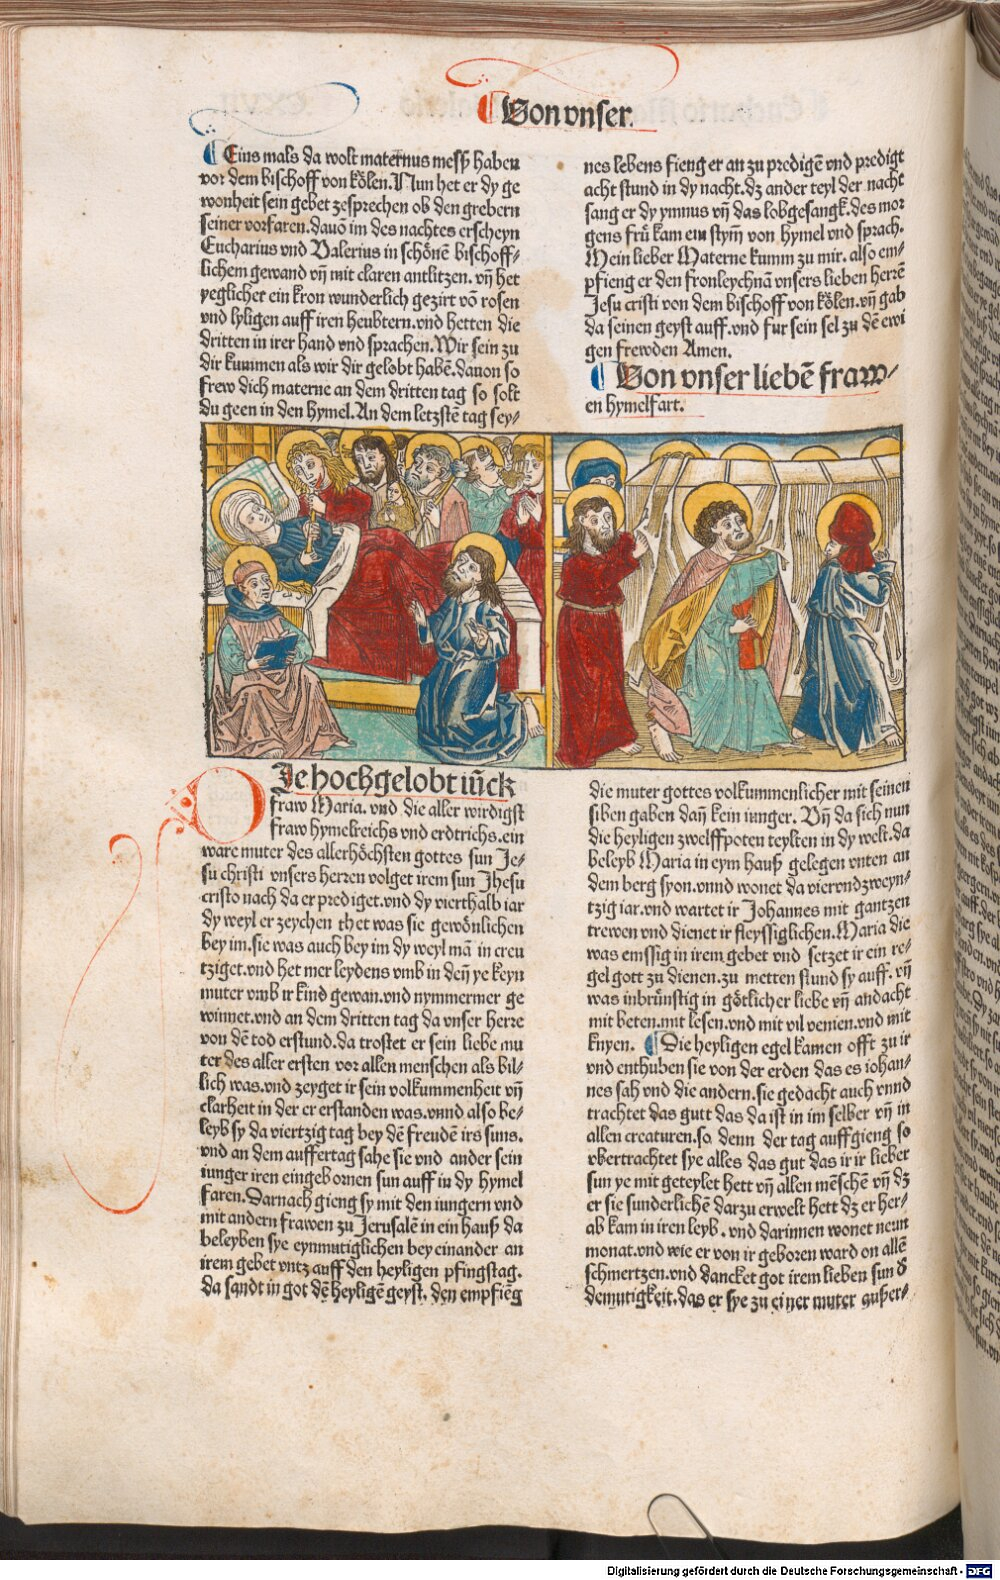 Von vnser.
Eins mals da wolt maternus mesß haben
vor dem bischoff von kölen. Nun het er dy ge
wonheit sein gebet zesprechen ob den grebern
seiner vorfaren. dauō im des nachtes erscheyn
Eucharius vnd Valerius in schönē bischoff-
lichem gewand vn̄ mit claren antlitzen. vn̄ het
yeglicher ein kron wunderlich gezirt vō rosen
vnd lyligen auff iren heubtern. vnd hetten die
dritten in irer hand vnd sprachen. Wir sein zu
dir kummen als wir dir gelobt habē. dauon so
frew dich materne an dem dritten tag so solt
du geen in den hymel. An dem letzstē tag sey-
nes lebens fieng er an zu predigē vnd predigt
acht stund in dy nacht. dz ander teyl der nacht
sang er dy ymnus vn̄ das lobgesangk. des mor
gens frü kam ein stym̄ von hymel vnd sprach.
Mein lieber Materne kumm zu mir. also em-
pfieng er den fronleychnā vnsers lieben herrē
Jesu cristi von dem bischoff von kölen. vn̄ gab
da seinen geyst auff. vnd fur sein sel zu dē ewi
gen frewden Amen.
Von vnser liebē fraw-
en hymelfart.
DJe hochgelobt iūck
fraw Maria. vnd die aller wirdigst
fraw hymelreichs vnd erdtrichs. ein
ware muter des allerhöchsten gottes sun Je-
su christi vnsers herren volget irem sun Jhesu
cristo nach da er prediget. vnd dy vierthalb iar
dy weyl er zeychen thet was sie gewönlichen
bey im. sie was auch bey im dy weyl mā in creu
tziget. vnd het mer leydens vmb in den̄ ye keyn
muter vmb ir kind gewan. vnd nymmermer ge
winnet. vnd an dem dritten tag da vnser herre
von dē tod erstund. da trostet er sein liebe mu
ter des aller ersten vor allen menschen als bil-
lich was. vnd zeyget ir sein volkummenheit vn̄
clarheit in der er erstanden was. vnnd also be-
leyb sy da viertzig tag bey dē freudē irs suns.
vnd an dem auffertag sahe sie vnd ander sein
iunger iren eingebornen sun auff in dy hymel
faren. Darnach gieng sy mit den iungern vnd
mit andern frawen zu Jerusalē in ein hauß da
beleyben sye eynmutiglichen bey einander an
irem gebet vntz auff den heyligen pfingstag.
da sandt in got dē heyligē geyst. den empfieng
die muter gottes volkummenlicher mit seinen
siben gaben dan̄ kein iunger. Vn̄ da sich nun
die heyligen zwelffpoten teylten in dy welt. da
beleyb Maria in eym hauß gelegen vnten an
dem berg syon. vnnd wonet da vierundzweyn-
tzig iar. vnd wartet ir Johannes mit gantzen
trewen vnd dienet ir fleyssiglichen. Maria die
was emssig in irem gebet vnd setzet ir ein re-
gel gott zu dienen. zu metten stund sy auff. vn̄
was inbrünstig in götlicher liebe vn̄ andacht
mit beten. mit lesen. vnd mit vil venien. vnd mit
knyen. Die heyligen egel kamen offt zu ir
vnd enthuben sie von der erden das es iohan-
nes sah vnd die andern. sie gedacht auch vnnd
trachtet das gutt das da ist in im selber vn̄ in
allen creaturen. so denn der tag auffgieng so
vbertrachtet sye alles das gut das ir ir lieber
sun ye mit geteylet hett vn̄ allen mēschē vn̄ dz
er sie sunderlichē darzu erwelt hett dz er her-
ab kam in iren leyb. vnd darinnen wonet neun
monat. vnd wie er von ir geboren ward on allē
schmertzen. vnd dancket got irem lieben sun d̕
demutigkeit. das er sye zu einer muter außer-
Digitalisierung gefördert durch die Deutsche Forschungsgemeinschaft - DFG